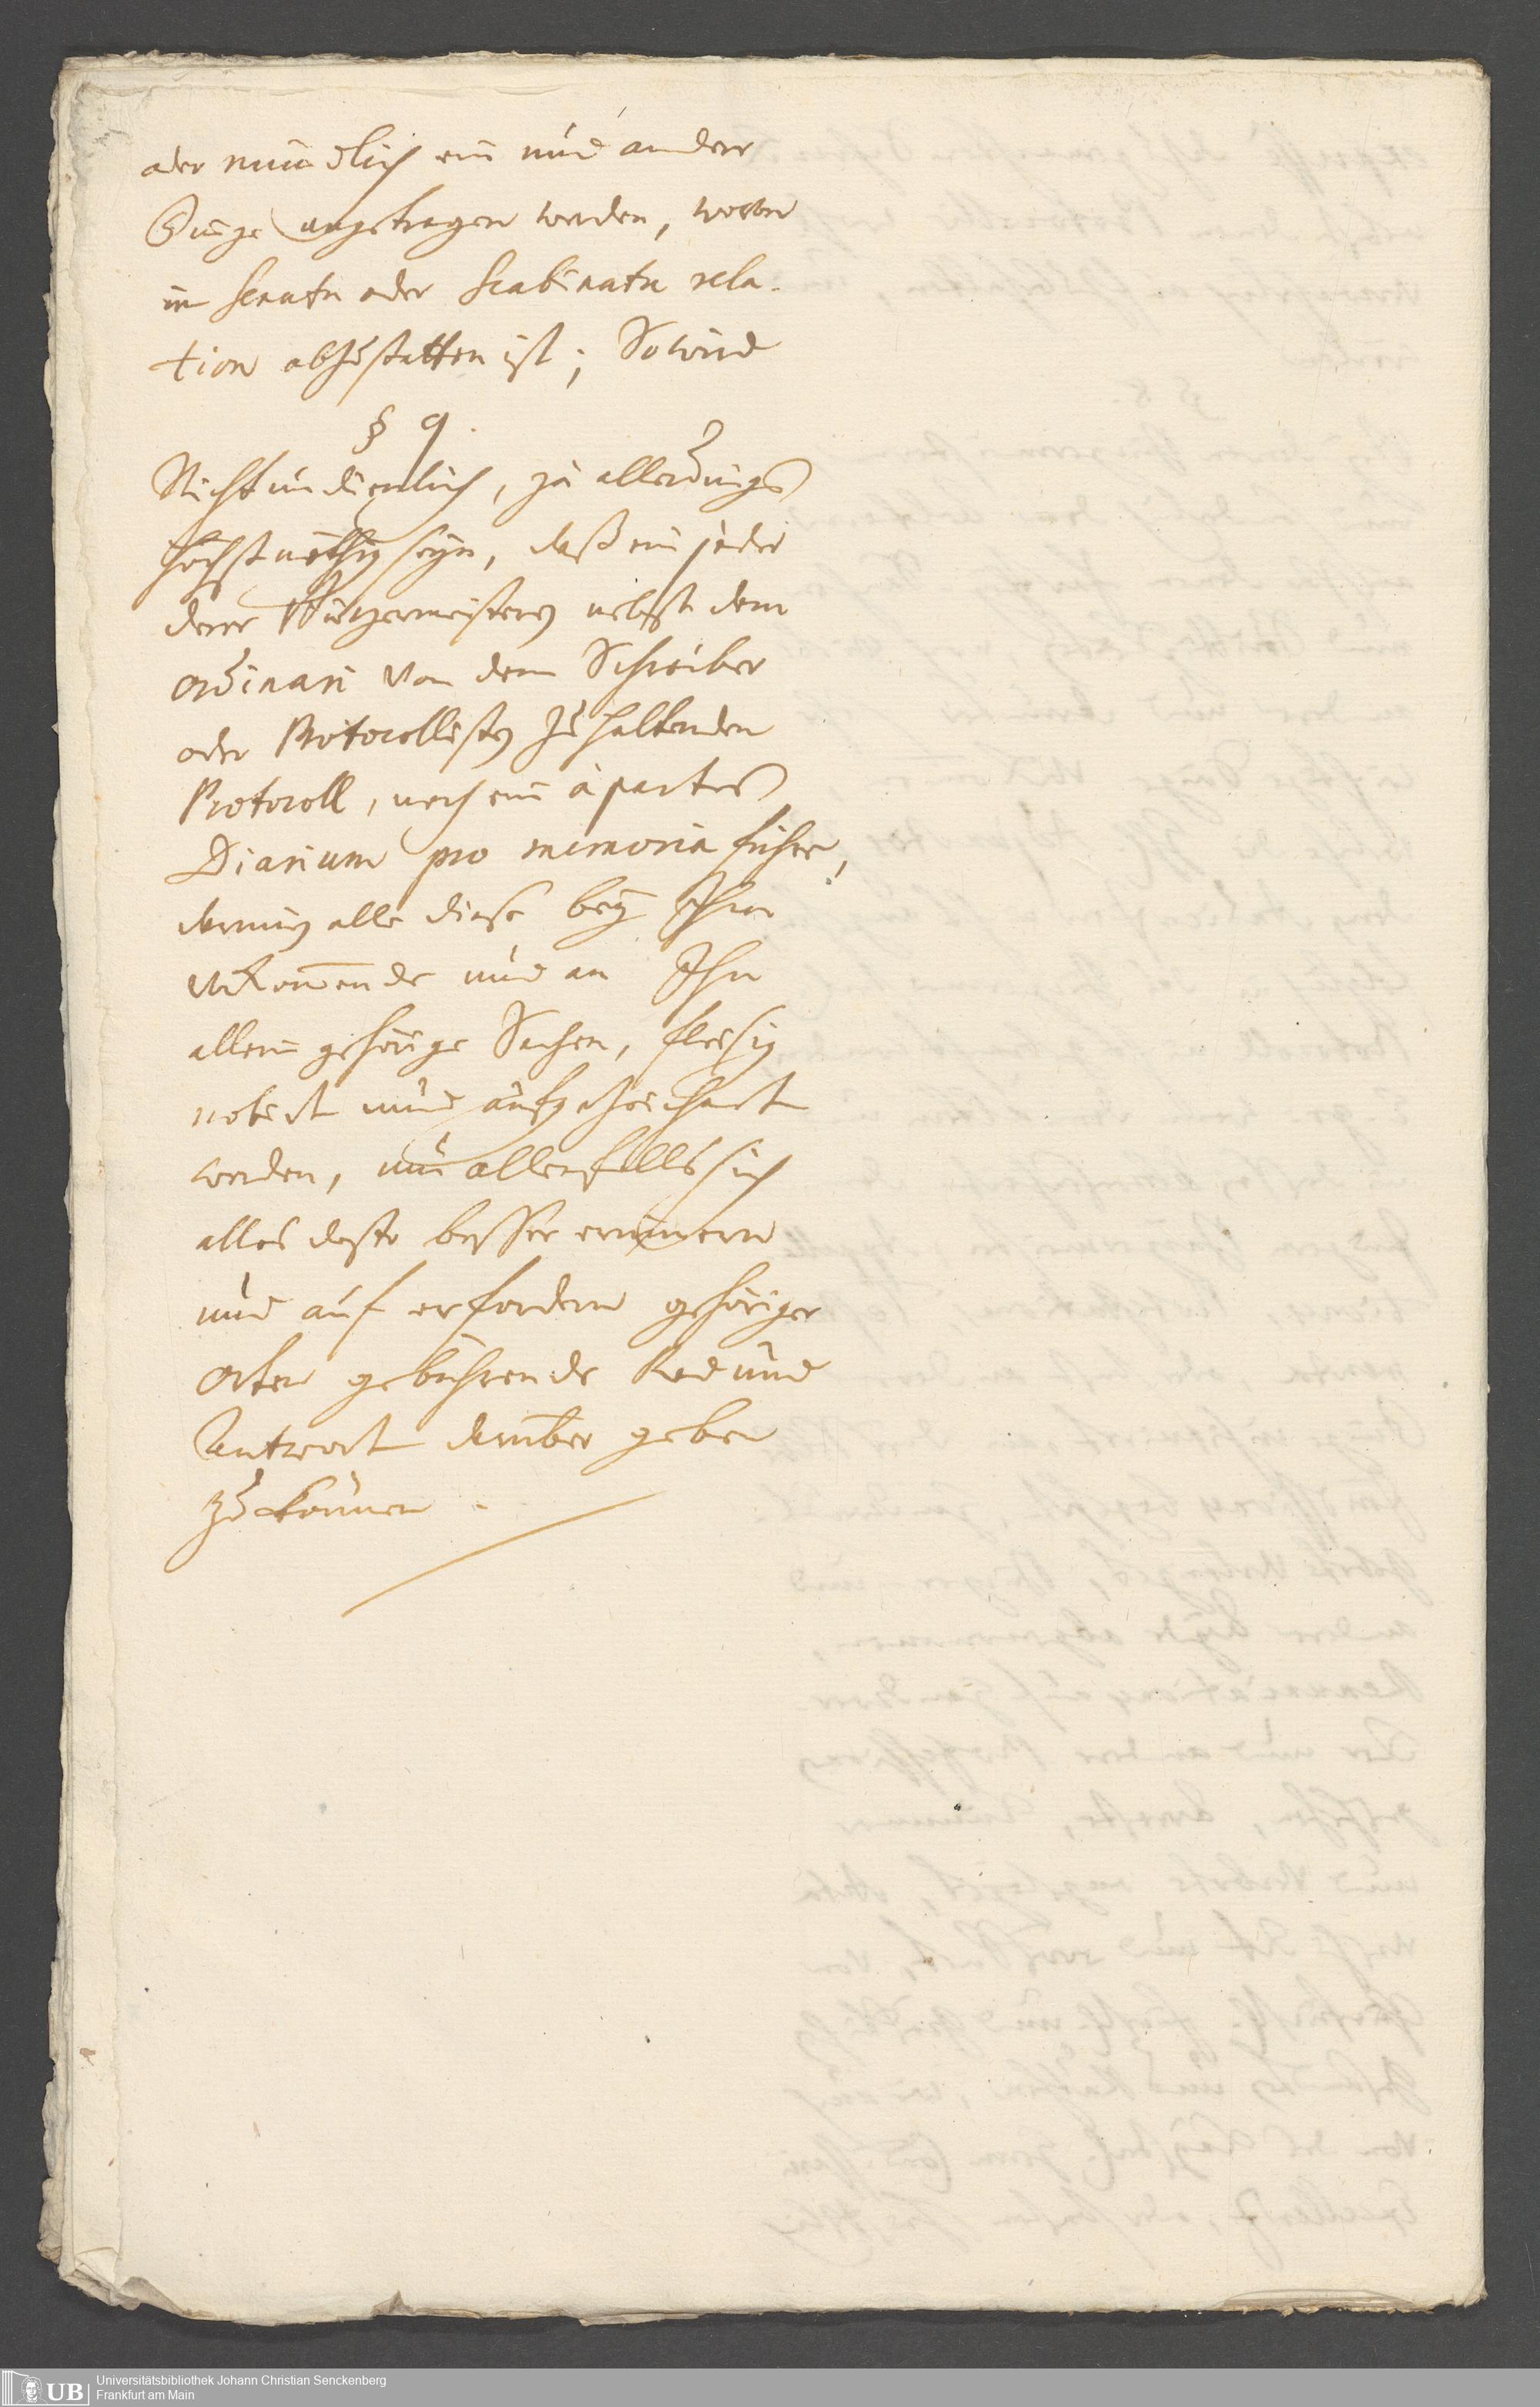 oder mündlich ein und andere
Dinge angetragen werden, wovon
in Senatu oder Scabinatu rela-
tion abzustatten ist; So wird
§ 9.
Nicht undienlich, ja allerdings
höchstnöthig seyn, daß ein jeder
derer Bürgermeistern nebst dem
ordinari von dem Schreiber
oder Protocollisten zuhaltenden
Protocoll, noch ein àpartes
Diarium pro memoria führe,
darinn alle diese bey Ihm
vorkommende und an Ihn
allein gehörige Sachen, fleisig
notirt und aufgezeichnet
werden, um allenfalls sich
alles desto besser erinnern
und auf erfordern gehöriger
Orten gebührende Red und
Antwort darüber geben
zu können.
Universitätsbibliothek Johann Christian Senckenberg
Frankfurt am Main
UB